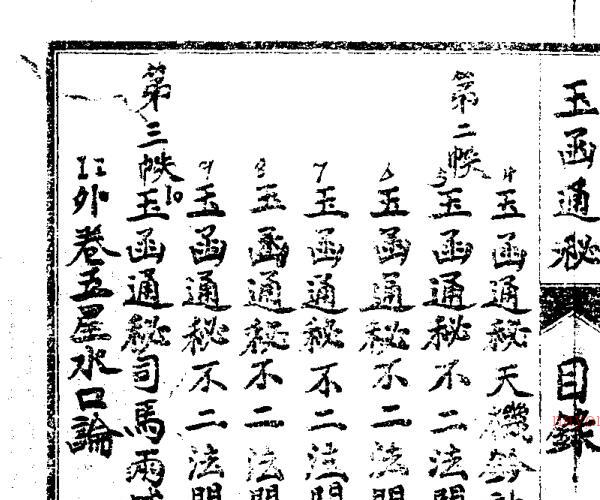 玉函通秘 目錄
4 玉函通秘天機
第二帙 5 玉函通秘不二法門
6 玉函通秘不二法門
7 玉函通秘不二法門
8 玉函通秘不二法門
9 玉函通秘不二法門
第三帙 10 玉函通秘司馬兩
11 外卷五星水口論